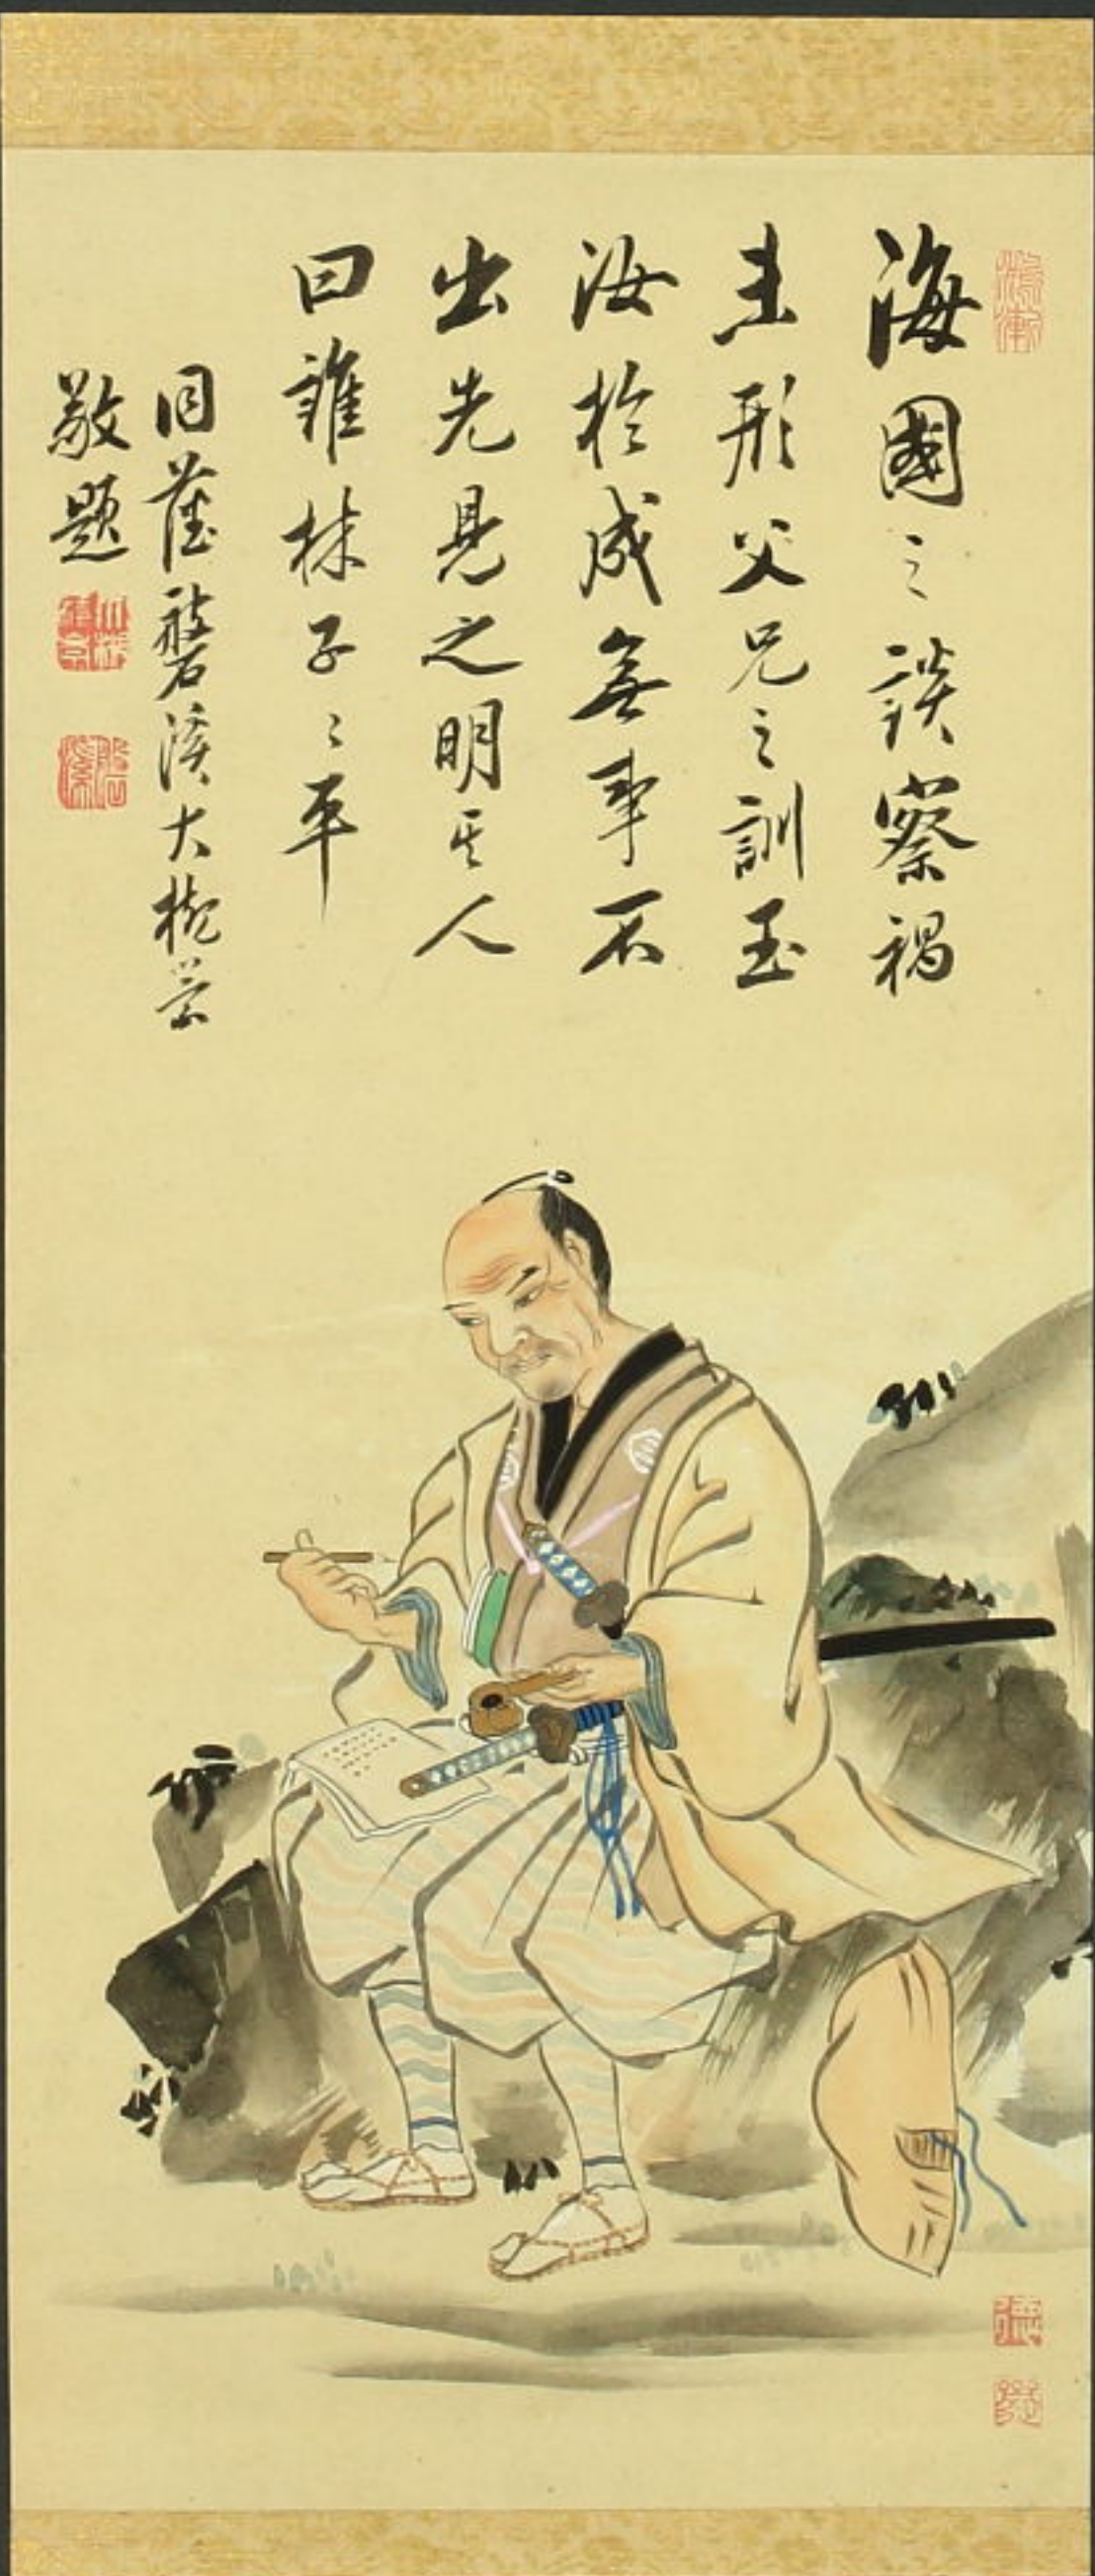 海國之談察禍
未形父兄之訓玉
汝於成無事不
出先見之明其人
曰誰林子〻平
同藩磐溪大槻崇
敬題